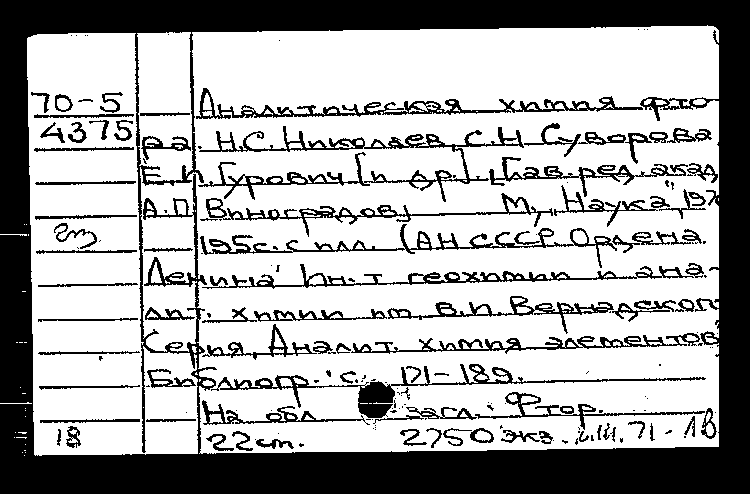 70-5 Аналитическая химия фто-
4375 ра. Н.С. Николаев, С.Н Суворова,
Е.И. Гурович [и др.]. [Глав. ред. акад
А.П. Виноградов] М., "Наука", 197
195с. с илл. (АН СССР. Ордена
Ленина Ин-т геохимии и ана-
лит. химии им. В.И. Вернадского
Серия "Аналит. химия элементов"
Библиогр.: с. 171-189.
На обл загл.: Фтор.
18 22 cm. 2750 экз. III. 71 - 1В